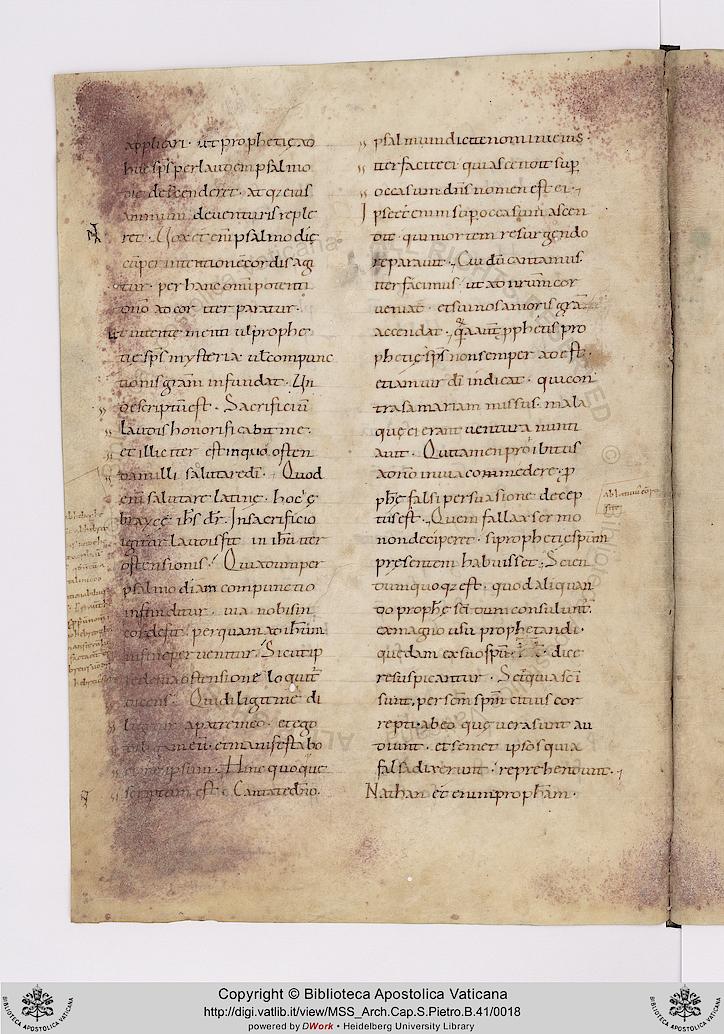 applicari. ut prophetię ad
huc sp̄s per laudem psalmo
die descenderet. atq; eius
animum de venturis reple
ret. Vox et eni psalmodię
cū per intentionē cordis agi
tur. per hanc omipotenti
dn̄o ad cor iter paratur.
ut intente menti ul prophe
tię sp̄s mysteria ul compunc
tionis gr̄am infundat. Un
de scriptū est. Sacrificiū
laudis honorificabit me.
et illic iter est in quo osten
dam illi salutare dī. Quod
eni salutare latine. hoc
ihs dr̄. In sacrificio
igitur laudis fit in ihū iter
ostensionis. Quia dum per
psalmodiam compunctio
infunditur. via nobis in
corde fit. per quam ad ihūm
in fine pervenitur. Sicut ip
se de sua ostensione loquit̄
dicens. Qui diligit me di
ligitur a patre meo. et ego
diligam eū. et manifestabo
ei me ipsum. Hinc quoque
scriptum est. Cantate dn̄o.
psalmum dicite nomini eius.
iter facite ei qui ascendit sup̄
occasum. dn̄s nomen est ei.
Ipse et enim sup occasum ascen
dit. qui mortem resurgendo
reparavit. Cui dū cantamus
iter facimus. ut ad nr̄um cor
veniat. et sui nos amoris gr̄a
accendat. Quia aut̄ pphetis pro
phetię sp̄s non semper adest.
etiam vir dī indicat. qui con
tra samariam missus. mala
quę ei erant ventura nunti
avit. Qui tamen prohibitus
a dn̄o in via commedere. p
phę falsi persuasione decep
tus est. Quem fallax sermo
non deciperet. si prophetię sp̄um
presentem habuisset. Scien
dumquoq; est. quod aliquan
do prophę sc̄i dum consulunt̄.
ex magno usu prophetandi.
quedam ex suo sp̄u. dice
re suspicantur. Sed quia sc̄i
sunt. per sc̄m sp̄m citius cor
repti. ab eo quę vera sunt au
diunt. et semet ipsos quia
falsa dixerunt. reprehendunt.
Nathan et enim proph̄am.
Copyright © Biblioteca Apostolica Vaticana
http://digi.vatlib.it/view/MSS_Arch.Cap.S.Pietro.B.41/0018
powered by DWork • Heidelberg University Library